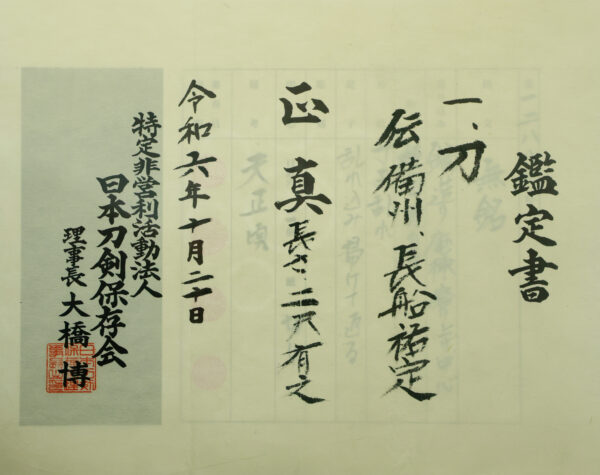 鑑定書
一、刀
伝備州、長船祐定
正真 長さ、二尺有之
令和六年十月二十日
特定非営利活動法人
日本刀剣保存会
理事長 大橋 博
無銘
天正頃